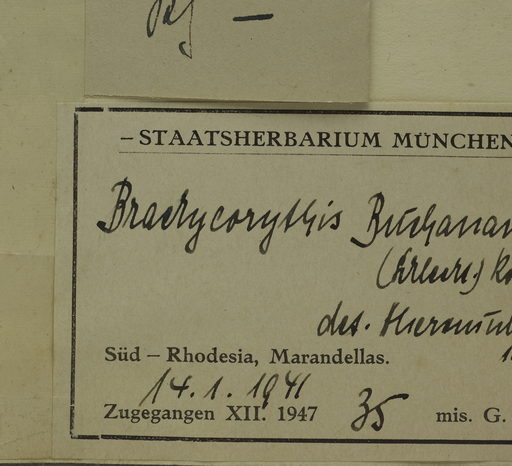 – STAATSHERBARIUM MÜNCHEN
Brachycorythis Buchanan
(Schlecht.) Ro
det.
Süd – Rhodesia, Marandellas.
14. 1. 1941
Zugegangen XII. 1947 35 mis. G.